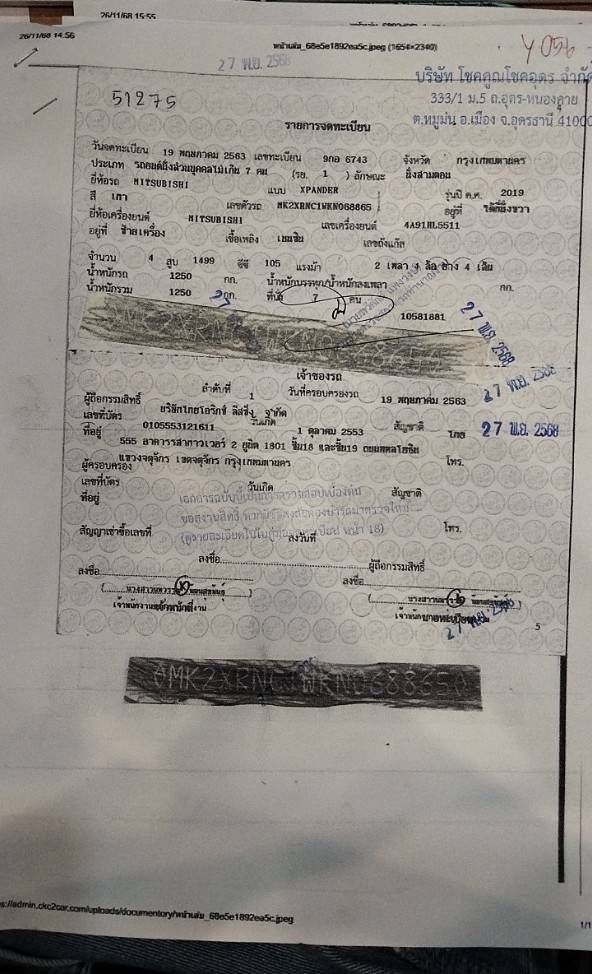 26/11/68 15:55
26/11/68 14:56
หน้าเล่ม_68e5e1892ea5c.jpeg (1654×2340)
Y056
27 พ.ย. 2568
บริษัท โชคคูณโชคอุดร จำกัด
51275
333/1 ม.5 ถ.อุดร-หนองคาย
ต.หมูม่น อ.เมือง จ.อุดรธานี 41000
รายการจดทะเบียน
วันจดทะเบียน 19 พฤษภาคม 2563 เลขทะเบียน 9กอ 6743 จังหวัด กรุงเทพมหานคร
ประเภท รถยนต์นั่งส่วนบุคคลไม่เกิน 7 คน (รย. 1 ) ลักษณะ นั่งสามตอน
ยี่ห้อรถ MITSUBISHI แบบ XPANDER รุ่นปี ค.ศ. 2019
สี เทา เลขตัวรถ MK2XRNC1WKN068865 อยู่ที่ ใต้ที่นั่งขวา
ยี่ห้อเครื่องยนต์ MITSUBISHI เลขเครื่องยนต์ 4A91HL5511
อยู่ที่ ซ้ายเครื่อง เชื้อเพลิง เบนซิน เลขถังแก๊ส
จำนวน 4 สูบ 1499 ซีซี 105 แรงม้า 2 เพลา 4 ล้อ ยาง 4 เส้น
น้ำหนักรถ 1250 กก. น้ำหนักบรรทุก/น้ำหนักลงเพลา กก.
น้ำหนักรวม 1250 กก. ที่นั่ง 7 คน
10581881
27 พ.ย. 2568
เจ้าของรถ
ลำดับที่ 1 วันที่ครอบครองรถ 19 พฤษภาคม 2563
27 พ.ย. 2568
ผู้ถือกรรมสิทธิ์ บริษัทโตโยร์กซ์ ลีสซิ่ง จำกัด
เลขที่บัตร 0105553121611 วันเกิด 1 ตุลาคม 2553 สัญชาติ ไทย
27 พ.ย. 2568
ที่อยู่ 555 อาคารรสาทาวเวอร์ 2 ยูนิต 1801 ชั้น18 และชั้น19 ถนนพหลโยธิน
แขวงจตุจักร เขตจตุจักร กรุงเทพมหานคร โทร.
ผู้ครอบครอง
เลขที่บัตร วันเกิด สัญชาติ
ที่อยู่
โทร.
สัญญาเช่าซื้อเลขที่ ลงวันที่
ลงชื่อ ผู้ถือกรรมสิทธิ์
ลงชื่อ ลงชื่อ
27 พ.ย. 2568
5
MK2XRNC1WKN068865
s://admin.ckc2car.com/uploads/documentory/หน้าเล่ม_68e5e1892ea5c.jpeg
1/1